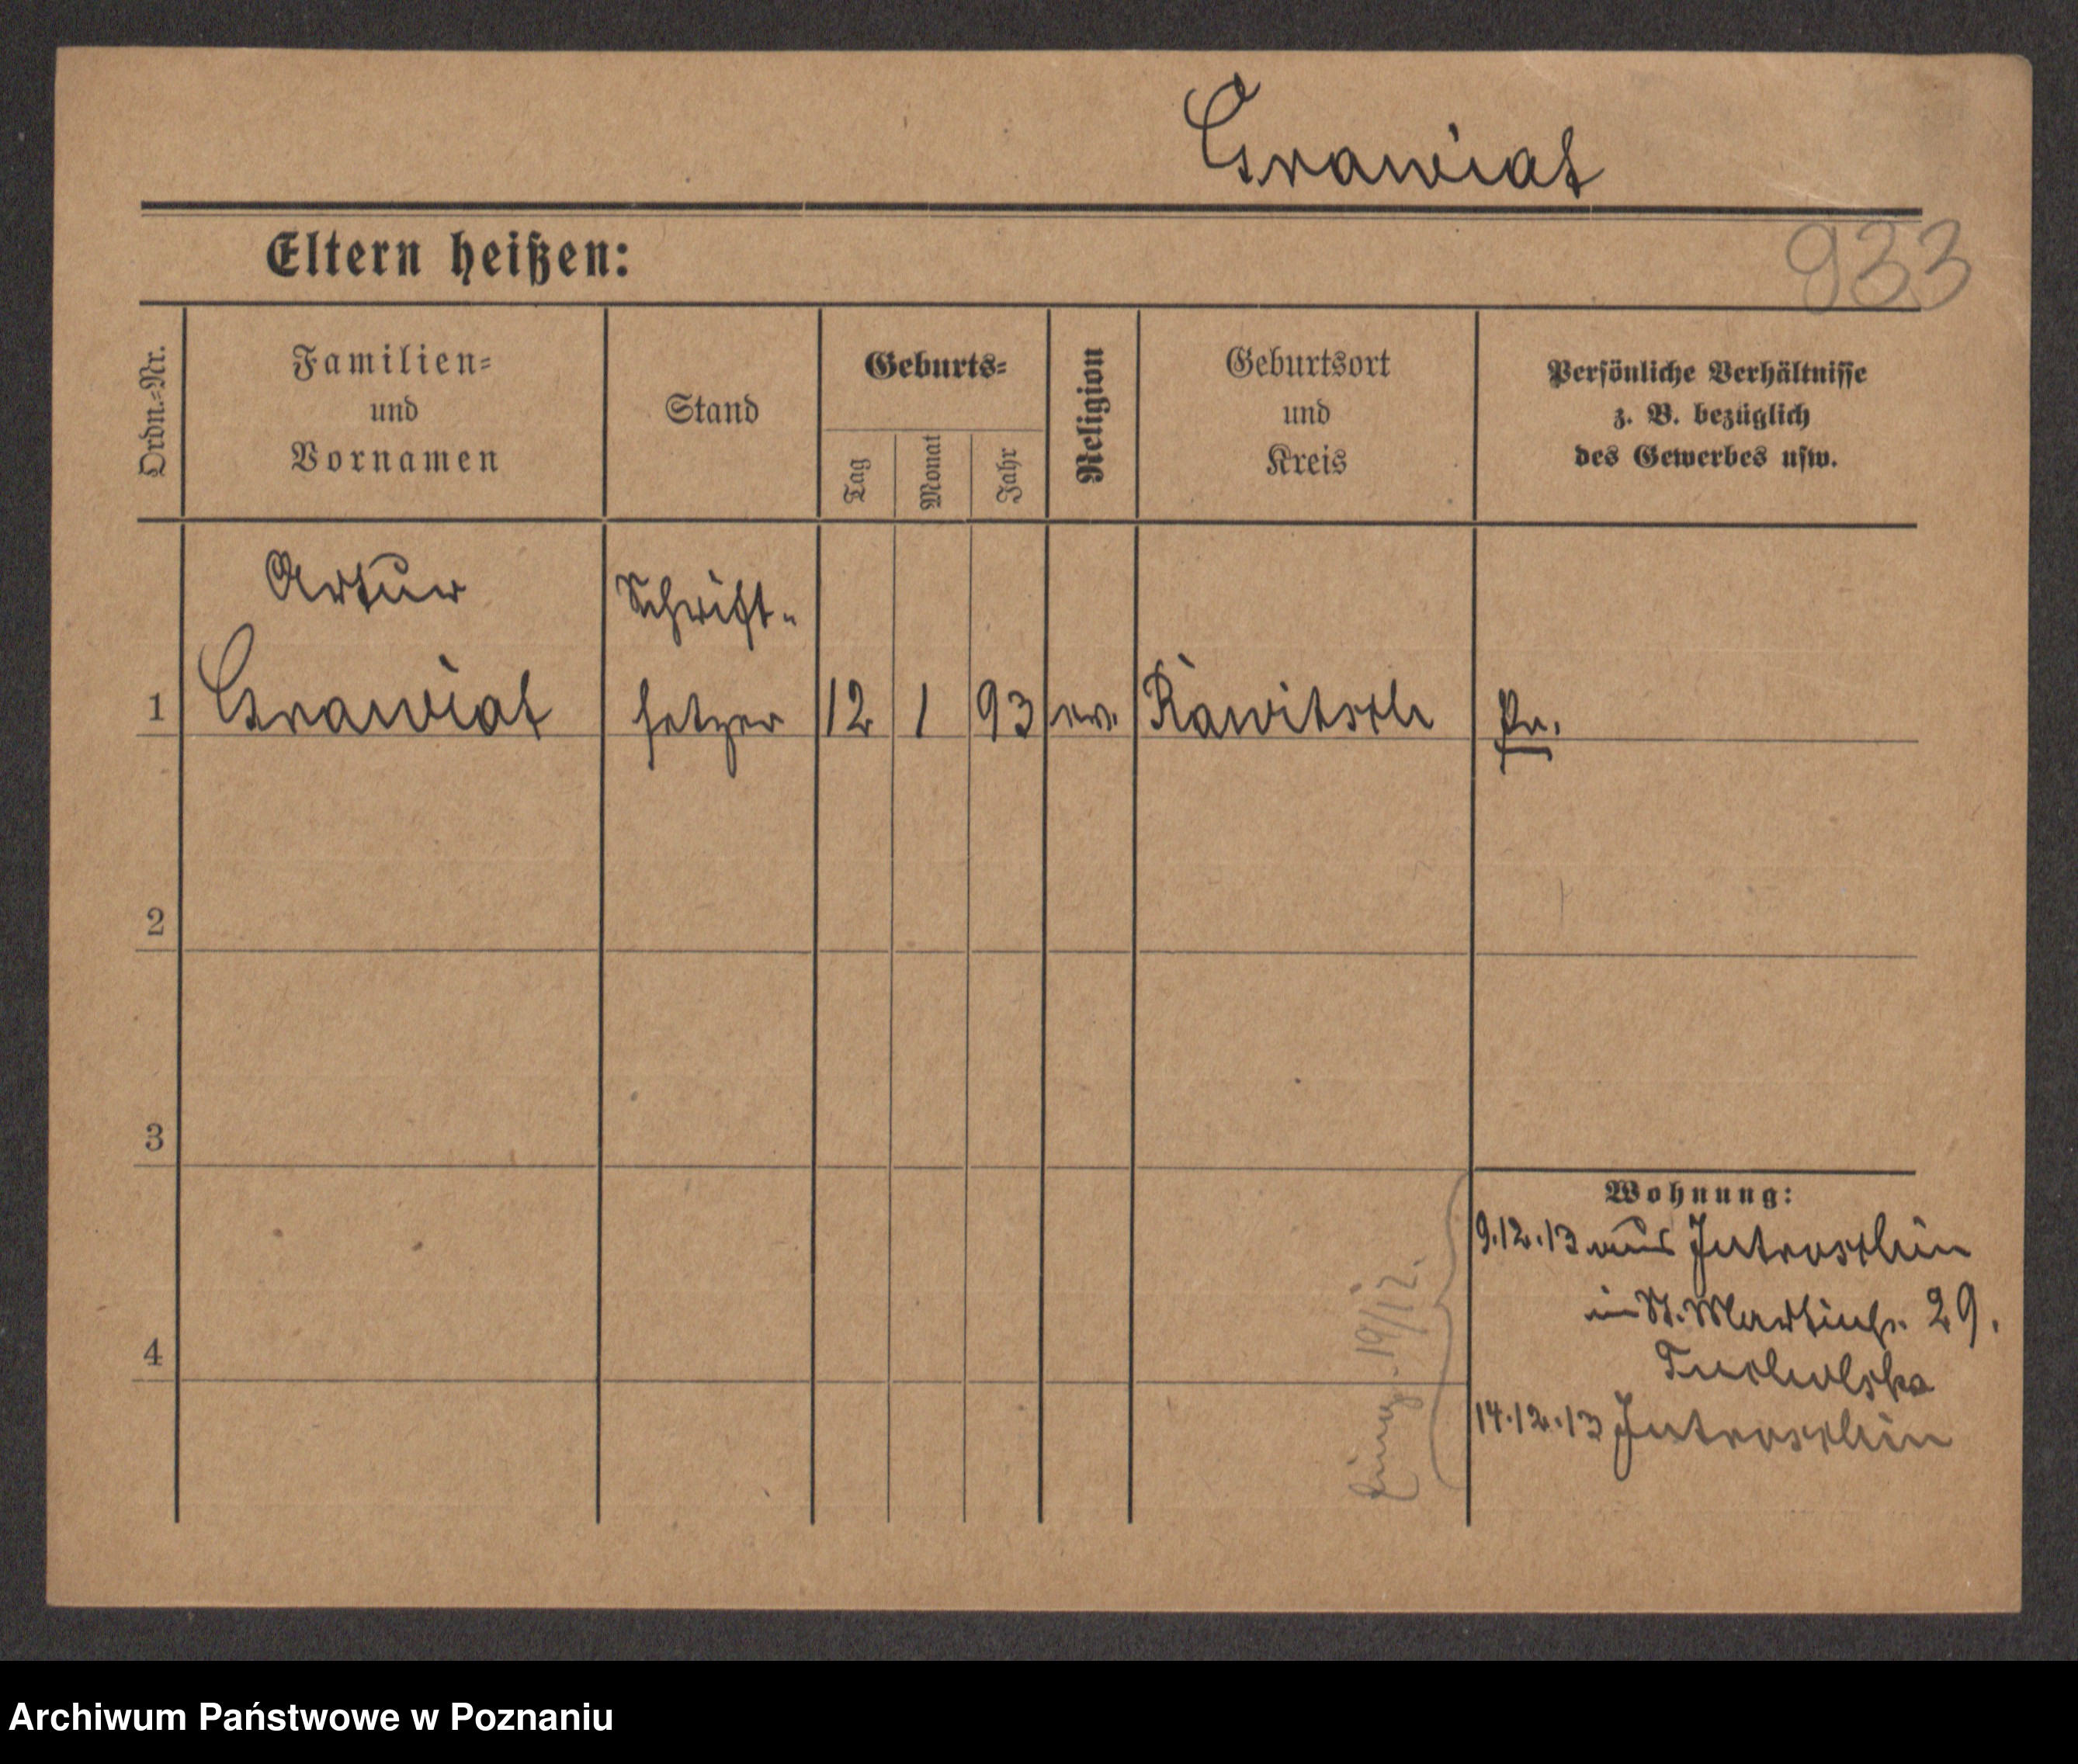 Grawiat
Eltern heißen:
933
Ordn.=Nr.
Familien=
und
Vornamen
Stand
Geburts=
Tag
Monat
Jahr
Religion
Geburtsort
und
Kreis
Persönliche Verhältnisse
z. B. bezüglich
des Gewerbes usw.
Artur
Schrift-
1 Grawiat setzer 12 1 93 ev. Rawitsch Pr.
2
3
4
Wohnung:
9.12.13 aus Jutroschin
in St. Martinstr. 29.
Tucholska
14.12.13 Jutroschin
19/12.
Archiwum Państwowe w Poznaniu